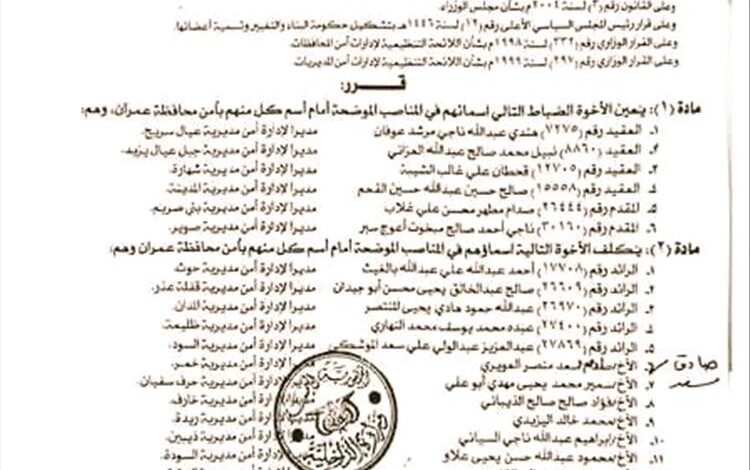 وعلى القانون رقم (٣) لسنة ٢٠٠٤م بشأن مجلس الوزراء.
وعلى قرار رئيس المجلس السياسي الأعلى رقم (١٢) لسنة ١٤٤٦هـ بتشكيل حكومة البناء والتغيير وتسمية أعضائها.
وعلى القرار الوزاري رقم (٢٣٢) لسنة ١٩٩٨م بشأن اللائحة التنظيمية لإدارات أمن المحافظات.
وعلى القرار الوزاري رقم (٢٩٧) لسنة ١٩٩٩م بشأن اللائحة التنظيمية لإدارات أمن المديريات.
قـــرر:
مادة (١): يعين الأخوة الضباط التالي اسمائهم في المناصب الموضحة أمام أسم كل منهم بأمن محافظة عمران، وهم:
١. العقيد رقم (٧٢٧٥) هندي عبدالله ناجي مرشد عوفان مديرا لإدارة أمن مديرية عيال سريح.
٢. العقيد رقم (٨٨٦٠) نبيل محمد صالح عبدالله العزاني مديرا لإدارة أمن مديرية جبل عيال يزيد.
٣. العقيد رقم (١٢٧٠٥) قحطان علي غالب الشيبة مديرا لإدارة أمن مديرية شهارة.
٤. العقيد رقم (١٥٥٥٨) صالح حسين عبدالله حسين القحم مديرا لإدارة أمن مديرية المدينة.
٥. المقدم رقم (٢٦٤٤٤) صدام مطهر محسن علي غلاب مديرا لإدارة أمن مديرية بني صريم.
٦. المقدم رقم (٣٠١٦٠) ناجي أحمد صالح مبخوت أعوج سبر مديرا لإدارة أمن مديرية صوير.
مادة (٢): يكلف الأخوة التالية اسماؤهم في المناصب الموضحة أمام أسم كل منهم بأمن محافظة عمران وهم:
١. الرائد رقم (١٧٧٠٨) أحمد عبدالله علي عبدالله بالغيث مديرا لإدارة أمن مديرية حوث.
٢. الرائد رقم (٢٦٦٠٩) صالح عبدالخالق يحيى محسن أبو جيدان مديرا لإدارة أمن مديرية قفلة عذر.
٣. الرائد رقم (٢٦٩٧٠) عبدالله حمود هادي يحيى المنتصر مديرا لإدارة أمن مديرية المدان.
٤. الرائد رقم (٢٧٤٠٠) عبده محمد يوسف محمد النهاري مديرا لإدارة أمن مديرية ظليمة.
٥. الرائد رقم (٢٧٨٦٩) عبدالعزيز عبدالولي علي سعد الموشكي مديرا لإدارة أمن مديرية السود.
الأخ/ سعد منصر العويري مديرا لإدارة أمن مديرية خمر.
صادق مسعد
٧. الأخ/سمير محمد يحيى مهدي أبو علي مديرا لإدارة أمن مديرية حرف سفيان.
٨. الأخ/فؤاد صالح صالح الذيباني لإدارة أمن مديرية خارف.
٩. الأخ/محمد خالد اليزيدي لإدارة أمن مديرية ريدة.
١٠. الأخ/إبراهيم عبدالله ناجي السياني لإدارة أمن مديرية ذيبين.
١١. الأخ/محمود عبدالله حسن يحيى علاو لإدارة أمن مديرية السودة.